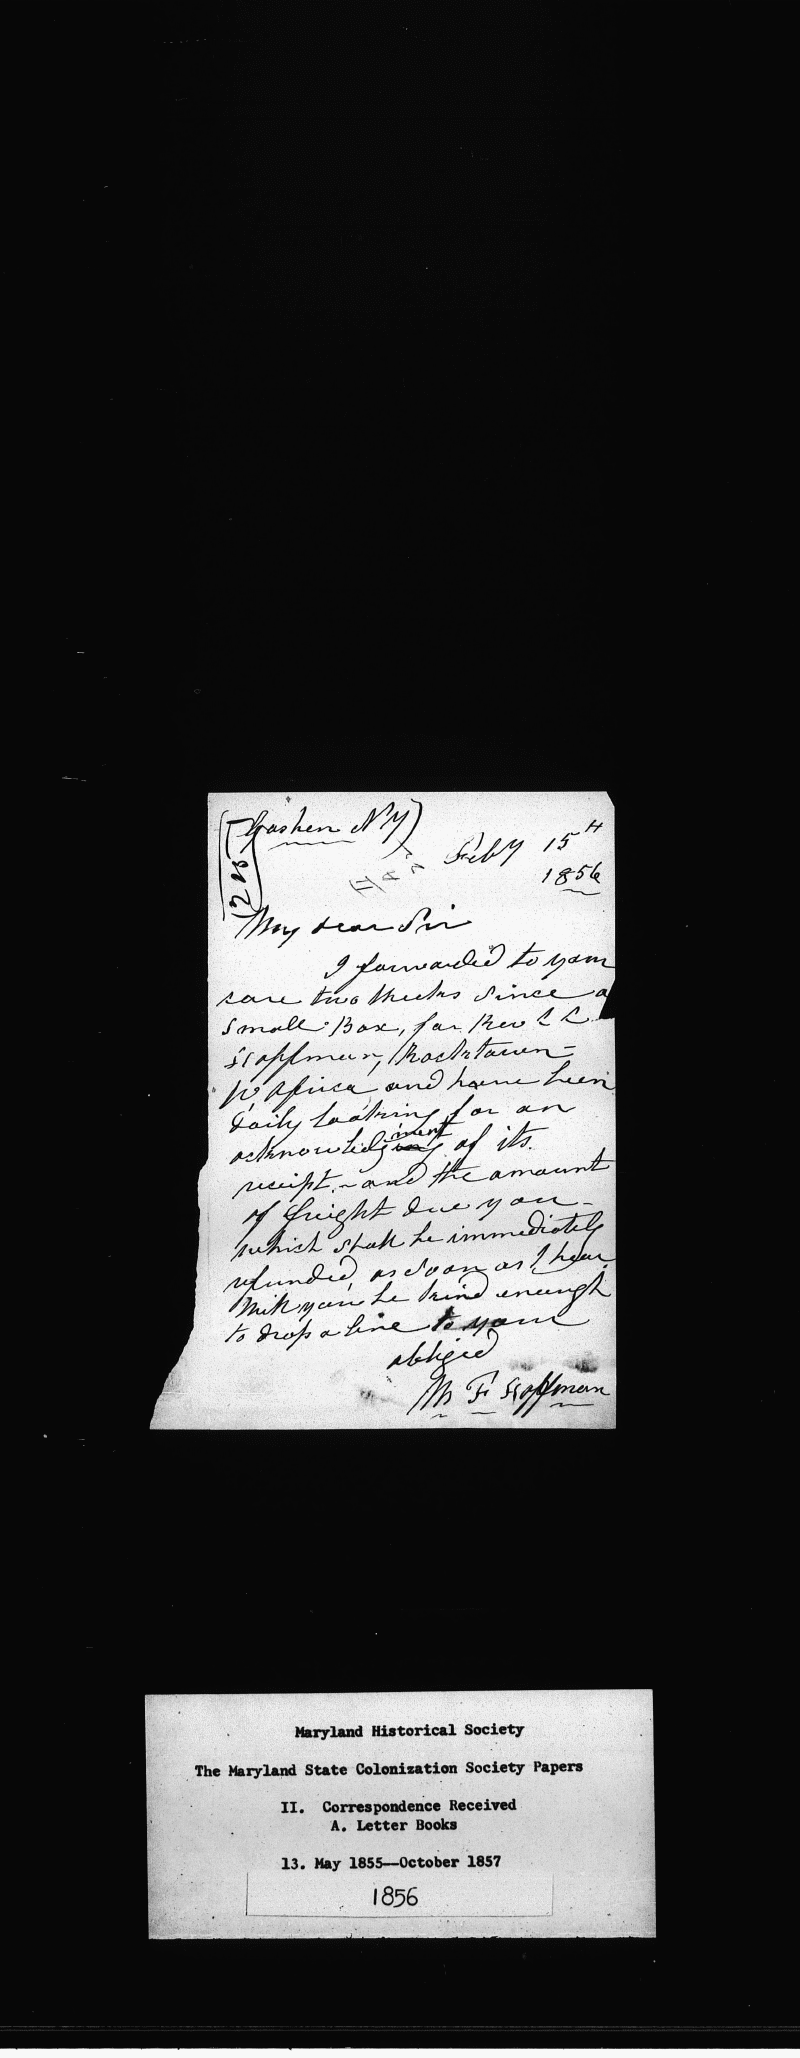 (Goshen N Y)
Feby 15th
1856
My dear Sir
I forwarded to your
care two weeks since a
small Box, for Rev C C
Hoffman, Rocktown-
W Africa and have been
daily looking for an
acknowledgment of its
receipt - and the amount
of freight due you -
which shall be immediately
refunded, as soon as I hear
Will you be kind enough
to drop a line to your
obliged
M F Hoffman
Maryland Historical Society
The Maryland State Colonization Society Papers
II. Correspondence Received
A. Letter Books
13. May 1855--October 1857
1856